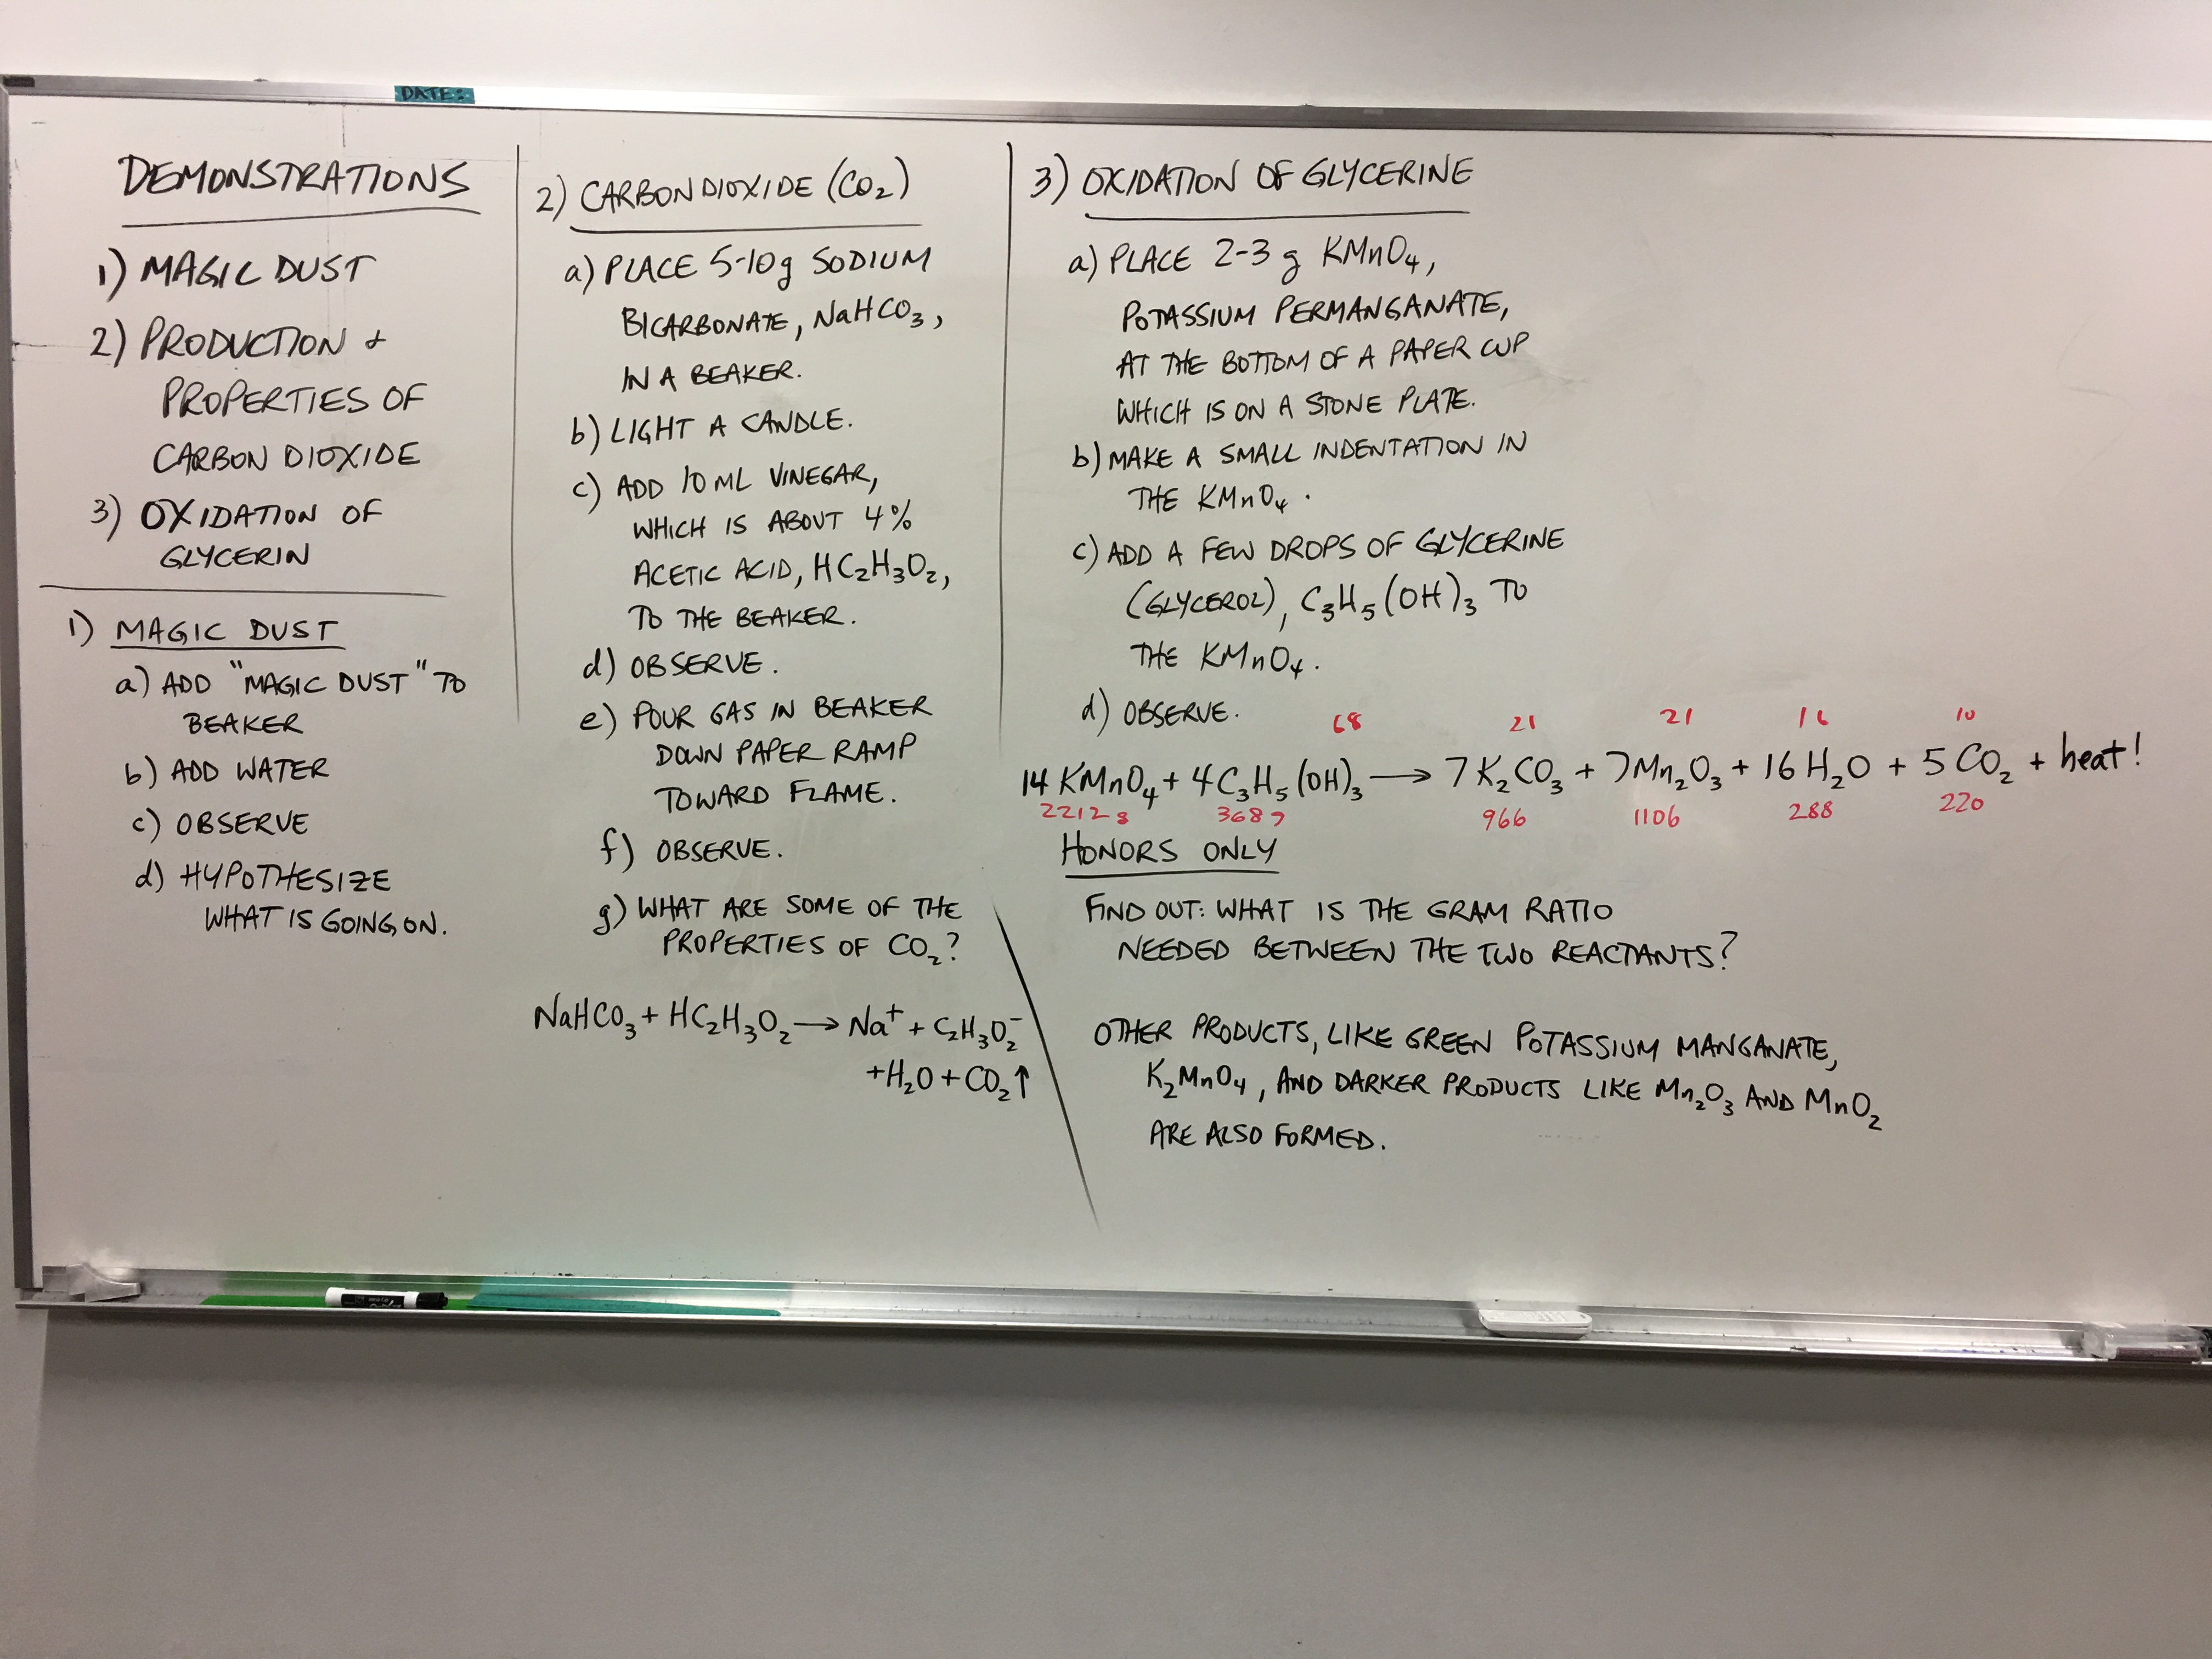 DATE:
DEMONSTRATIONS
1) MAGIC DUST
2) PRODUCTION +
PROPERTIES OF
CARBON DIOXIDE
3) OXIDATION OF
GLYCERIN
1) MAGIC DUST
a) ADD "MAGIC DUST" TO
BEAKER
b) ADD WATER
c) OBSERVE
d) HYPOTHESIZE
WHAT IS GOING ON.
2) CARBON DIOXIDE (CO₂)
a) PLACE 5-10g SODIUM
BICARBONATE, NaHCO₃,
IN A BEAKER.
b) LIGHT A CANDLE.
c) ADD 10 ML VINEGAR,
WHICH IS ABOUT 4%
ACETIC ACID, HC₂H₃O₂,
TO THE BEAKER.
d) OBSERVE.
e) POUR GAS IN BEAKER
DOWN PAPER RAMP
TOWARD FLAME.
f) OBSERVE.
g) WHAT ARE SOME OF THE
PROPERTIES OF CO₂?
NaHCO₃ + HC₂H₃O₂ → Na⁺ + C₂H₃O₂⁻
+ H₂O + CO₂↑
3) OXIDATION OF GLYCERINE
a) PLACE 2-3 g KMnO₄,
POTASSIUM PERMANGANATE,
AT THE BOTTOM OF A PAPER CUP
WHICH IS ON A STONE PLATE.
b) MAKE A SMALL INDENTATION IN
THE KMnO₄.
c) ADD A FEW DROPS OF GLYCERINE
(GLYCEROL), C₃H₅(OH)₃ TO
THE KMnO₄.
d) OBSERVE.
68 21 21 16 10
14 KMnO₄ + 4 C₃H₅(OH)₃ → 7 K₂CO₃ + 7 Mn₂O₃ + 16 H₂O + 5 CO₂ + heat!
2212 g 368 g 966 1106 288 220
HONORS ONLY
FIND OUT: WHAT IS THE GRAM RATIO
NEEDED BETWEEN THE TWO REACTANTS?
OTHER PRODUCTS, LIKE GREEN POTASSIUM MANGANATE,
K₂MnO₄, AND DARKER PRODUCTS LIKE Mn₂O₃ AND MnO₂
ARE ALSO FORMED.